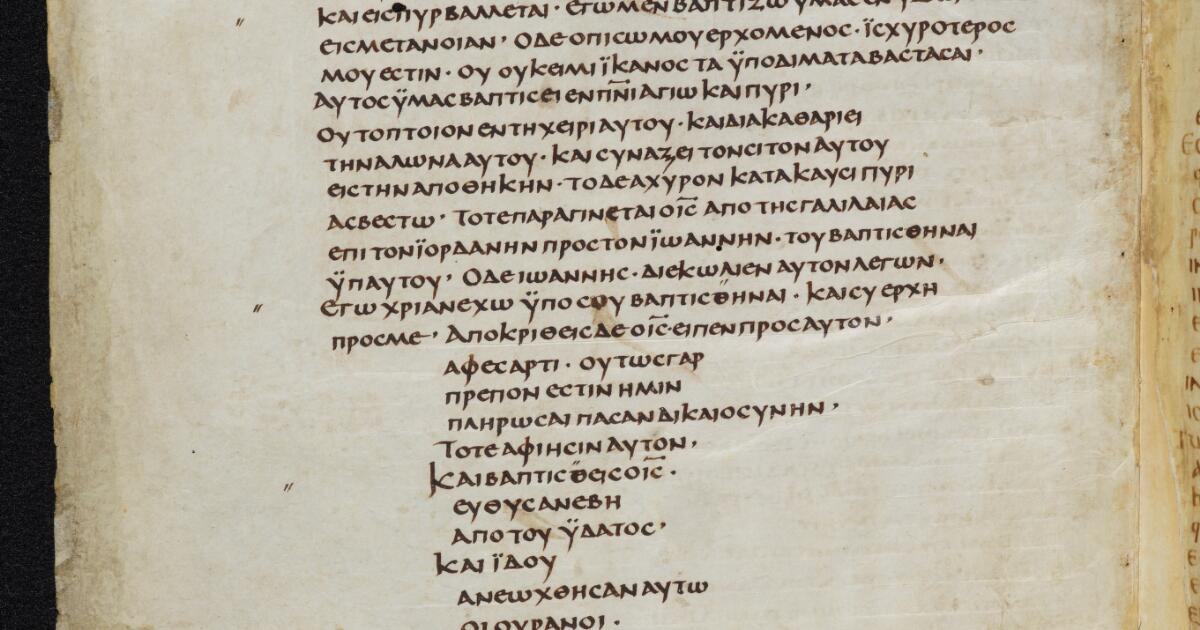 ΚΑΙΕΙCΠΥΡΒΑΛΛΕΤΑΙ· ΕΓΩΜΕΝΒΑΠΤΙΖΩΥΜΑC
ΕΙCΜΕΤΑΝΟΙΑΝ· ΟΔΕΟΠΙCΩΜΟΥΕΡΧΟΜΕΝΟC· ΪCΧΥΡΟΤΕΡΟC
ΜΟΥΕCΤΙΝ· ΟΥ ΟΥΚΕΙΜΙΪΚΑΝΟC ΤΑ ΫΠΟΔΙΜΑΤΑΒΑCΤΑCΑΙ·
ΑΥΤΟCΫΜΑCΒΑΠΤΙCΕΙΕΝΠ̅Ν̅Ι̅ΑΓΙΩ ΚΑΙΠΥΡΙ·
ΟΥΤΟΠΤΟΙΟΝΕΝΤΗΧΕΙΡΙΑΥΤΟΥ· ΚΑΙΔΙΑΚΑΘΑΡΙΕΙ
ΤΗΝΑΛΩΝΑΑΥΤΟΥ· ΚΑΙ CΥΝΑΞΕΙ ΤΟΝCΙΤΟΝΑΥΤΟΥ
ΕΙCΤΗΝΑΠΟΘΗΚΗΝ· ΤΟΔΕΑΧΥΡΟΝ ΚΑΤΑΚΑΥCΙ ΠΥΡΙ
ΑCΒΕCΤΩ· ΤΟΤΕΠΑΡΑΓΙΝΕΤΑΙΟΙ̅C̅ ΑΠΟ ΤΗCΓΑΛΙΛΑΙΑC
ΕΠΙ ΤΟΝΪΟΡΔΑΝΗΝ ΠΡΟCΤΟΝΪΩΑΝΝΗΝ· ΤΟΥΒΑΠΤΙCΘΗΝΑΙ
ΫΠΑΥΤΟΥ· ΟΔΕΙΩΑΝΝΗC· ΔΙΕΚΩΛΙΕΝΑΥΤΟΝΛΕΓΩΝ·
ΕΓΩ ΧΡΙΑΝΕΧΩ ΫΠΟCΟΥ ΒΑΠΤΙCΘΗΝΑΙ· ΚΑΙCΥΕΡΧΗ
ΠΡΟCΜΕ· ΑΠΟΚΡΙΘΕΙCΔΕΟΙ̅C̅·ΕΙΠΕΝΠΡΟCΑΥΤΟΝ·
ΑΦΕCΑΡΤΙ· ΟΥΤΩCΓΑΡ
ΠΡΕΠΟΝ ΕCΤΙΝ ΗΜΙΝ
ΠΛΗΡΩCΑΙ ΠΑCΑΝΔΙΚΑΙΟCΥΝΗΝ·
ΤΟΤΕΑΦΙΗCΙΝΑΥΤΟΝ·
ΚΑΙΒΑΠΤΙCΘΕΙCΟΙ̅C̅·
ΕΥΘΥCΑΝΕΒΗ
ΑΠΟΤΟΥ ΫΔΑΤΟC·
ΚΑΙ ΪΔΟΥ
ΑΝΕΩΧΘΗCΑΝΑΥΤΩ
ΟΙΟΥΡΑΝΟΙ·